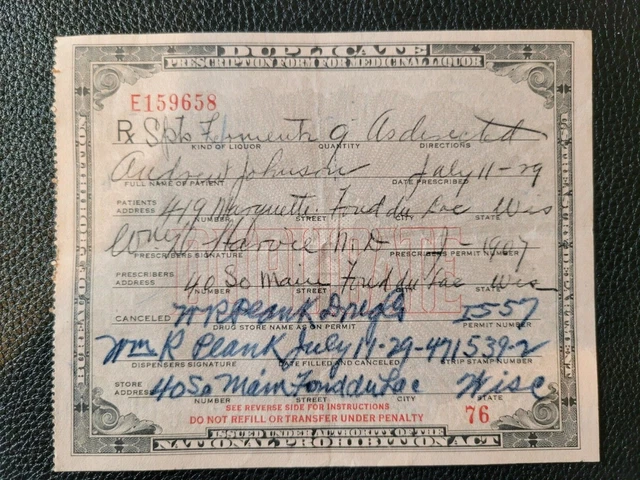 DUPLICATE
PRESCRIPTION FORM FOR MEDICINAL LIQUOR
E159658
Rx Spts Frumenti As directed
KIND OF LIQUOR QUANTITY DIRECTIONS
Andrew Johnson July 11-29
FULL NAME OF PATIENT DATE PRESCRIBED
PATIENTS ADDRESS 419 Marquette Fond du Lac Wis
NUMBER STREET CITY STATE
DUPLICATE
Harvie M.D. 1907
PRESCRIBERS SIGNATURE PRESCRIBERS PERMIT NUMBER
PRESCRIBERS ADDRESS 40 So Main Fond du Lac Wis
NUMBER STREET CITY STATE
CANCELED W R Plank Drug Co I557
DRUG STORE NAME AS ON PERMIT PERMIT NUMBER
Wm R Plank July 11-29-471539-2
DISPENSERS SIGNATURE DATE FILLED AND CANCELLED STRIP STAMP NUMBER
STORE ADDRESS 40 So Main Fond du Lac Wisc
NUMBER STREET CITY STATE
SEE REVERSE SIDE FOR INSTRUCTIONS
DO NOT REFILL OR TRANSFER UNDER PENALTY 76
ISSUED UNDER AUTHORITY OF THE
NATIONAL PROHIBITION ACT